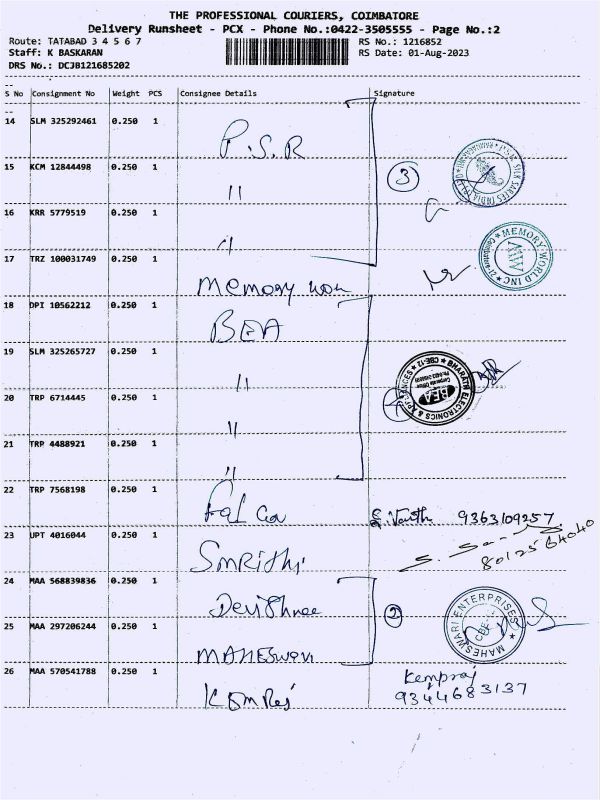 THE PROFESSIONAL COURIERS, COIMBATORE
Delivery Runsheet - PCX - Phone No.:0422-3505555 - Page No.:2
Route: TATABAD 3 4 5 6 7
RS No.: 1216852
Staff: K BASKARAN
RS Date: 01-Aug-2023
DRS No.: DCJB121685202
S No Consignment No Weight PCS Consignee Details Signature
14 SLM 325292461 0.250 1 P.S.R
15 KCM 12844498 0.250 1 "
3
16 KRR 5779519 0.250 1 "
17 TRZ 100031749 0.250 1 Memory
MEMORY WORLD INC
MW
18 DPI 10562212 0.250 1 BEA
19 SLM 325265727 0.250 1 "
BHARATH ELECTRONICS & APPLIANCES
Corporate Office
BEA
CBE-12
20 TRP 6714445 0.250 1 "
21 TRP 4488921 0.250 1 "
22 TRP 7568198 0.250 1
9363109257
23 UPT 4016044 0.250 1 Smrithi
8012564040
24 MAA 568839836 0.250 1 Devishree
2
MAHESWARI ENTERPRISES
25 MAA 297206244 0.250 1 Maheswari
26 MAA 570541788 0.250 1
Kempraj
9344683137